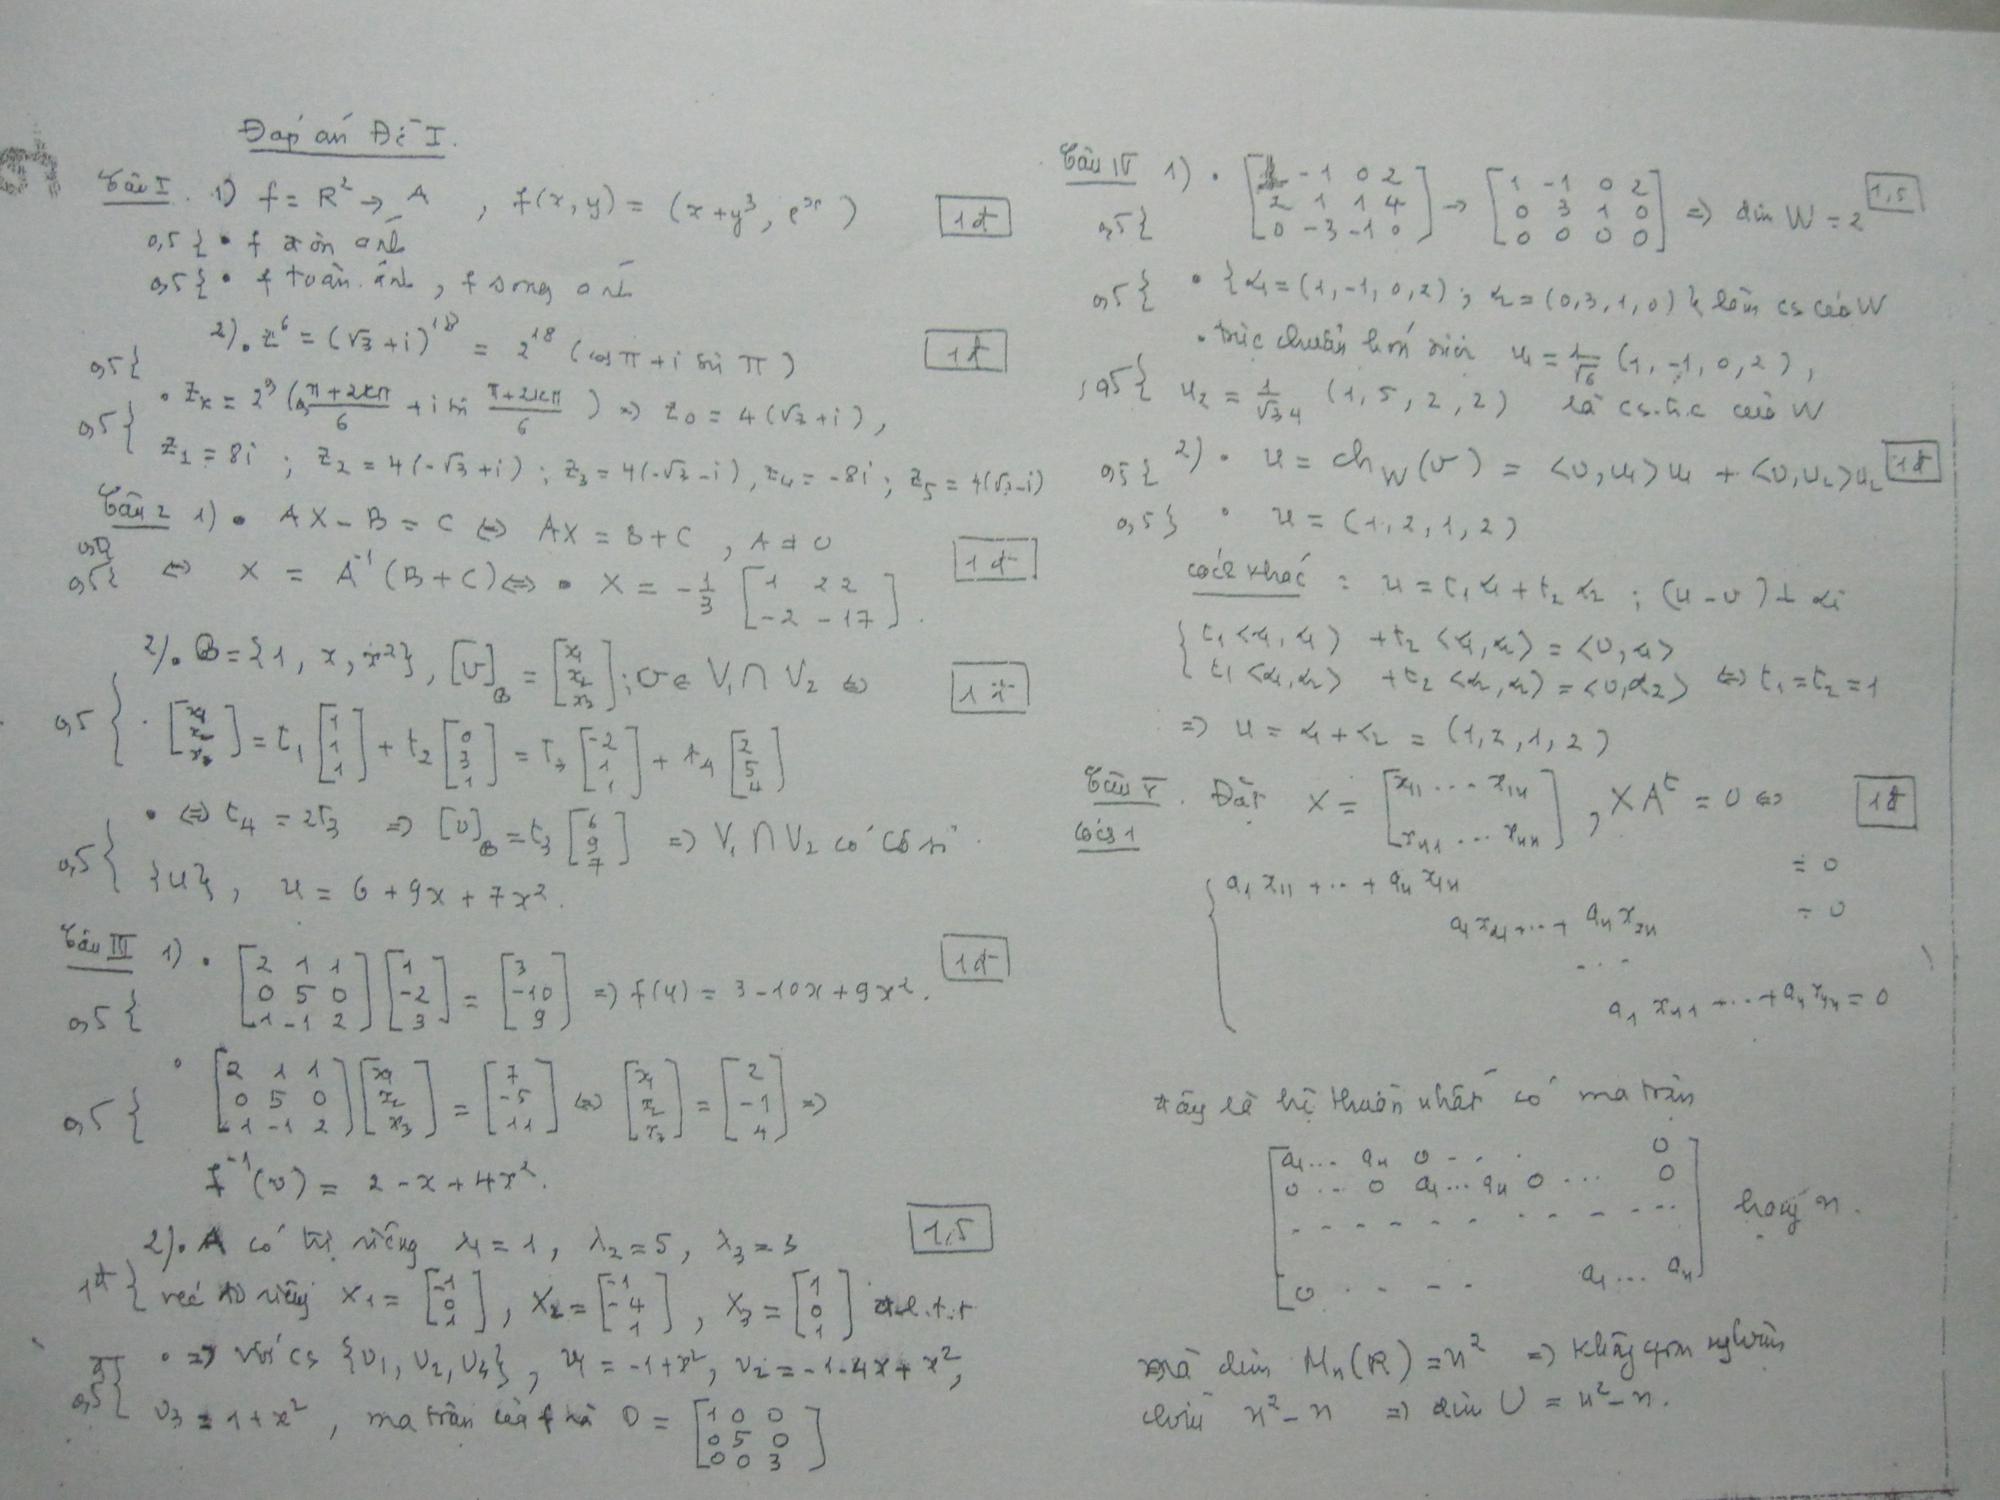 Đáp án Đề I.
Câu I. 1) f = R² → A , f(x,y) = (x+y³, eˣ) 1đ
0,5 { • f đơn ánh
0,5 { • f toàn ánh, f song ánh
0,5 { 2). z⁶ = (√3+i)¹⁸ = 2¹⁸ (cos π + i sin π) 1đ
0,5 { • z_k = 2³ (cos (π+2kπ)/6 + i sin (π+2kπ)/6) ⇒ z₀ = 4(√3+i),
z₁ = 8i ; z₂ = 4(-√3+i) ; z₃ = 4(-√3-i), z₄ = -8i ; z₅ = 4(√3-i)
Câu 2 1) • AX - B = C ⇔ AX = B+C , A ≠ 0
0,5 { ⇔ X = A⁻¹(B+C) ⇔ • X = -1/3 [1 22; -2 -17]. 1đ
2). B = {1, x, x²}, [v]_B = [x₁; x₂; x₃] ; v ∈ V₁ ∩ V₂ ⇔ 1đ
0,5 { • [x₁; x₂; x₃] = t₁ [1; 1; 1] + t₂ [0; 3; 1] = t₃ [-2; 1; 1] + t₄ [2; 5; 4]
0,5 { • ⇔ t₄ = 2t₃ ⇒ [v]_B = t₃ [6; 9; 7] ⇒ V₁ ∩ V₂ có cơ sở
{u}, u = 6 + 9x + 7x².
Câu III 1) • [2 1 1; 0 5 0; 1 -1 2] [1; -2; 3] = [3; -10; 9] ⇒ f(u) = 3 - 10x + 9x². 1đ
0,5 {
0,5 { • [2 1 1; 0 5 0; 1 -1 2] [x₁; x₂; x₃] = [7; -5; 11] ⇔ [x₁; x₂; x₃] = [2; -1; 4] ⇒
f⁻¹(v) = 2 - x + 4x².
2). A có trị riêng λ₁ = 1, λ₂ = 5, λ₃ = 3 1,5
1đ { véc tơ riêng X₁ = [-1; 0; 1], X₂ = [-1; -4; 1], X₃ = [1; 0; 1] đ.l.t.t
0,5 { • ⇒ với cs {v₁, v₂, v₃}, v₁ = -1+x², v₂ = -1-4x+x²,
v₃ = 1+x², ma trận của f là D = [1 0 0; 0 5 0; 0 0 3]
Câu IV 1) • [1 -1 0 2; 2 1 1 4; 0 -3 -1 0] → [1 -1 0 2; 0 3 1 0; 0 0 0 0] ⇒ dim W = 2 1,5
0,5 {
0,5 { • {α₁ = (1,-1,0,2) ; α₂ = (0,3,1,0)} làm cs của W
• trực chuẩn hoá u₁ = 1/√6 (1,-1,0,2),
0,5 { u₂ = 1/√34 (1,5,2,2) là cs.t.c của W
0,5 { 2) • u = ch_W(v) = <v,u₁>u₁ + <v,u₂>u₂ 1đ
0,5 } • u = (1,2,1,2)
cách khác : u = t₁α₁ + t₂α₂ ; (u-v) ⊥ αᵢ
{ t₁<α₁,α₁> + t₂<α₁,α₂> = <v,α₁>
t₁<α₁,α₂> + t₂<α₂,α₂> = <v,α₂> ⇔ t₁=t₂=1
⇒ u = α₁+α₂ = (1,2,1,2)
Câu V. Đặt X = [x₁₁ ... x₁ₙ; xₙ₁ ... xₙₙ], XAᵗ = 0 ⇔ 1đ
cách 1
{ a₁x₁₁ + ... + aₙx₁ₙ = 0
a₁x₂₁ + ... + aₙx₂ₙ = 0
...
a₁xₙ₁ + ... + aₙxₙₙ = 0
đây là hệ thuần nhất có ma trận
[a₁ ... aₙ 0 ... 0
0 ... 0 a₁ ... aₙ 0 ... 0
- - - - - - - - - - - hạng n.
0 - - - - a₁ ... aₙ]
mà dim Mₙ(R) = n² ⇒ không gian nghiệm
chiều n² - n ⇒ dim U = n² - n.